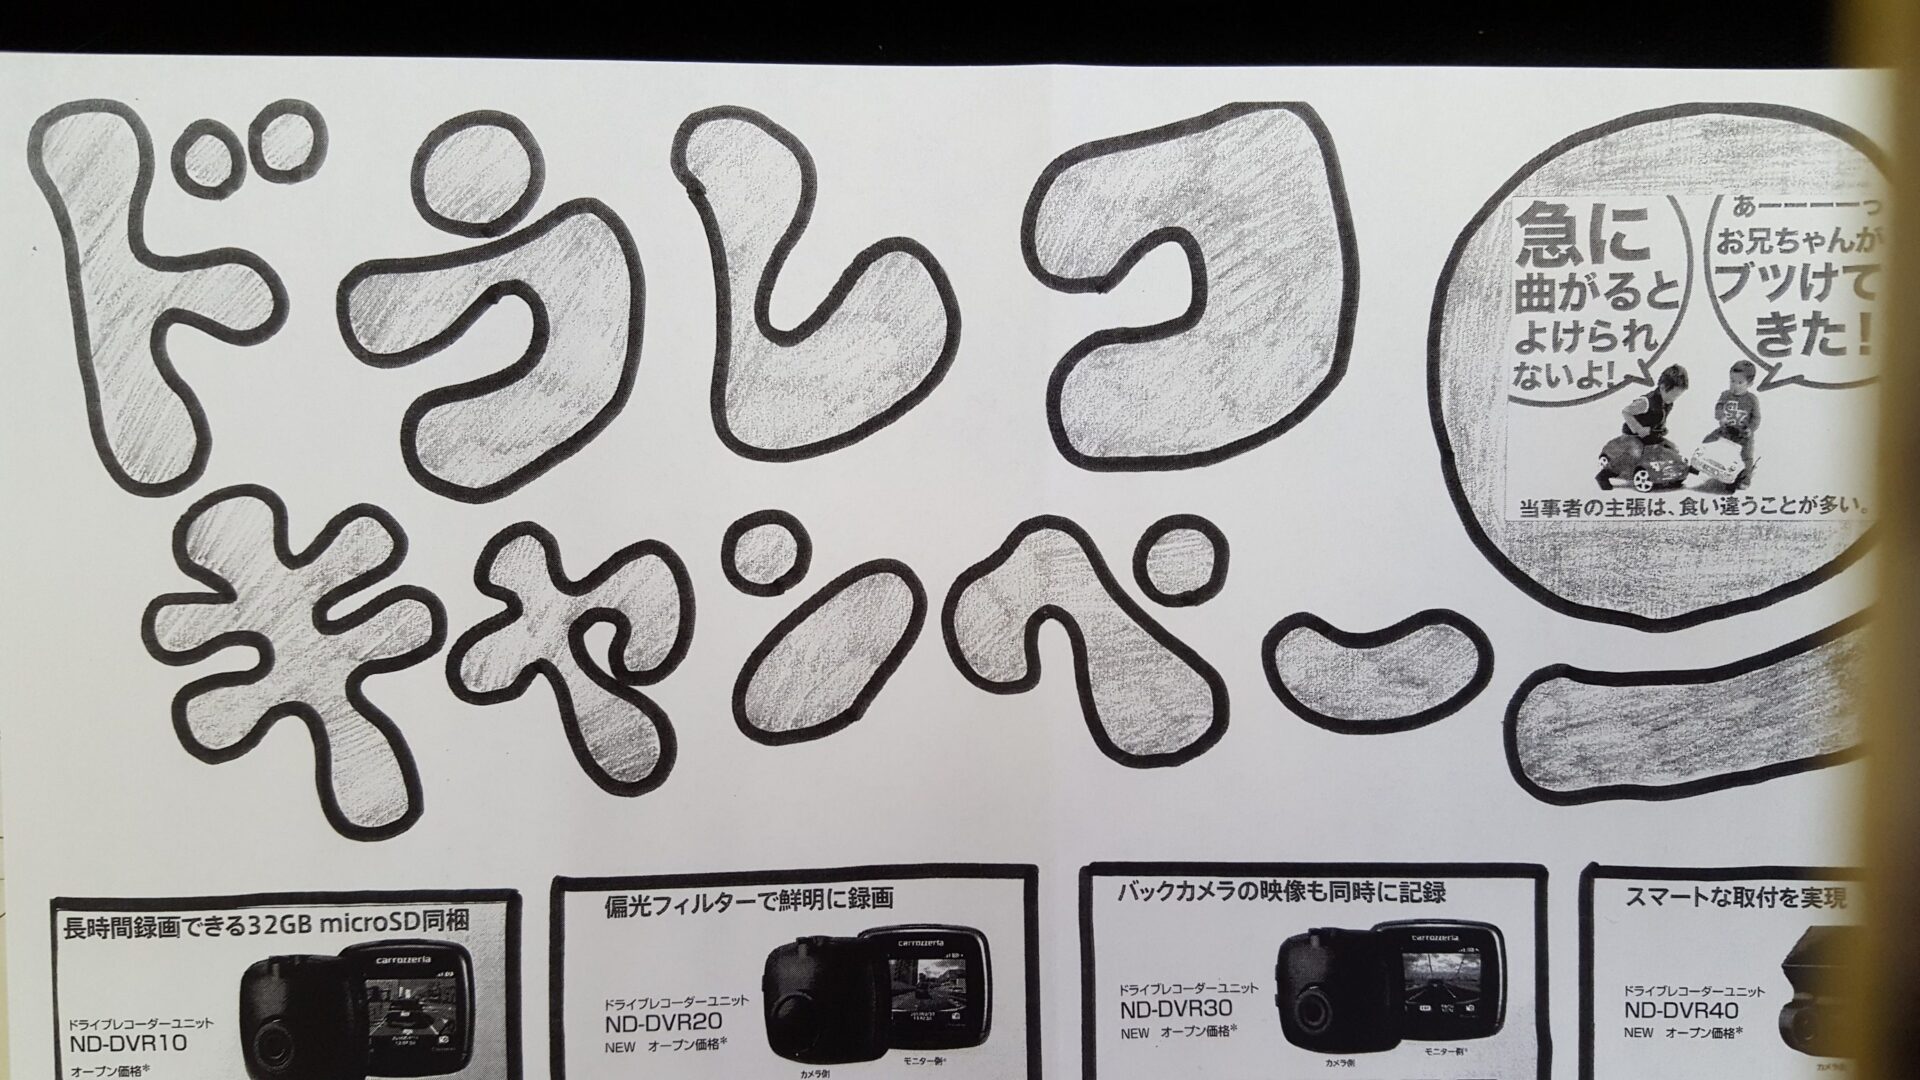 ドラレコ
キャンペーン
急に
曲がると
よけられ
ないよ!
あーーーーっ
お兄ちゃんが
ブツけて
きた!
当事者の主張は、食い違うことが多い。
長時間録画できる32GB microSD同梱
carrozzeria
ドライブレコーダーユニット
ND-DVR10
オープン価格*
偏光フィルターで鮮明に録画
carrozzeria
ドライブレコーダーユニット
ND-DVR20
NEW オープン価格*
カメラ側
モニター側*
バックカメラの映像も同時に記録
carrozzeria
ドライブレコーダーユニット
ND-DVR30
NEW オープン価格*
カメラ側
モニター側*
スマートな取付を実現
ドライブレコーダーユニット
ND-DVR40
NEW オープン価格*
カメラ側